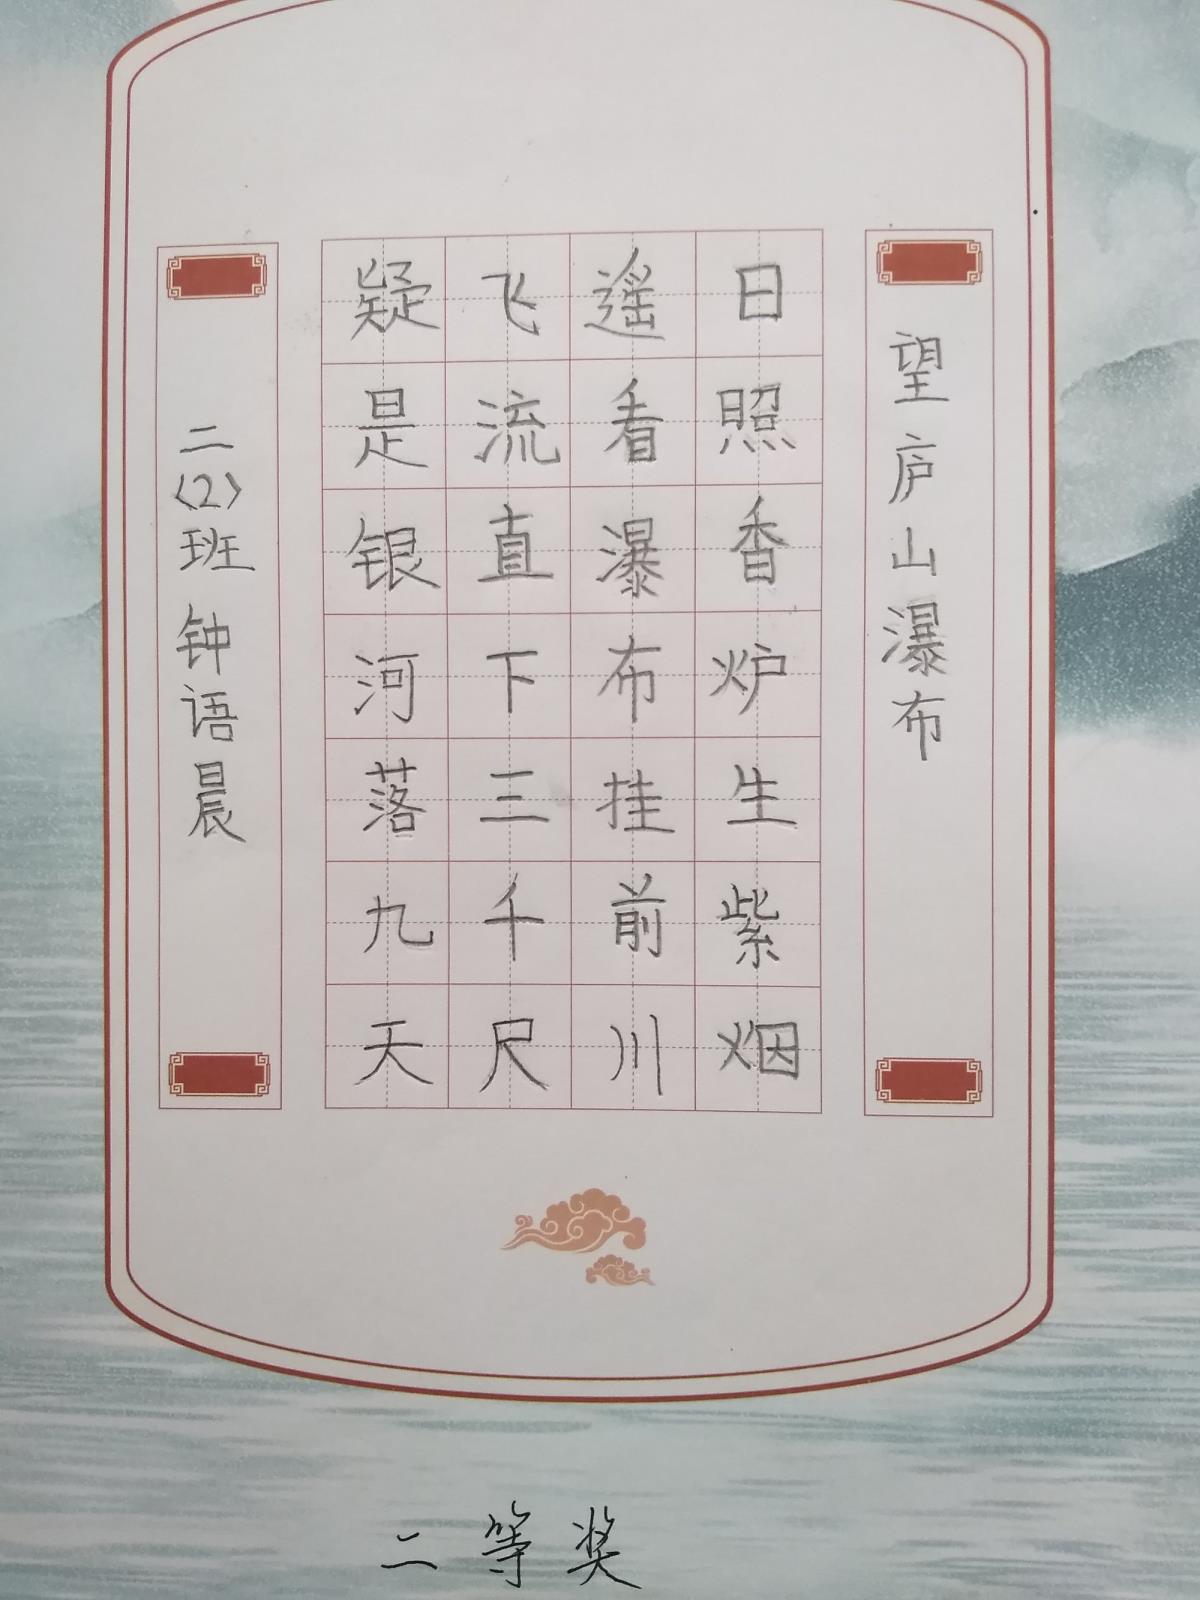 望庐山瀑布
日照香炉生紫烟
遥看瀑布挂前川
飞流直下三千尺
疑是银河落九天
二（2）班 钟语晨
二等奖